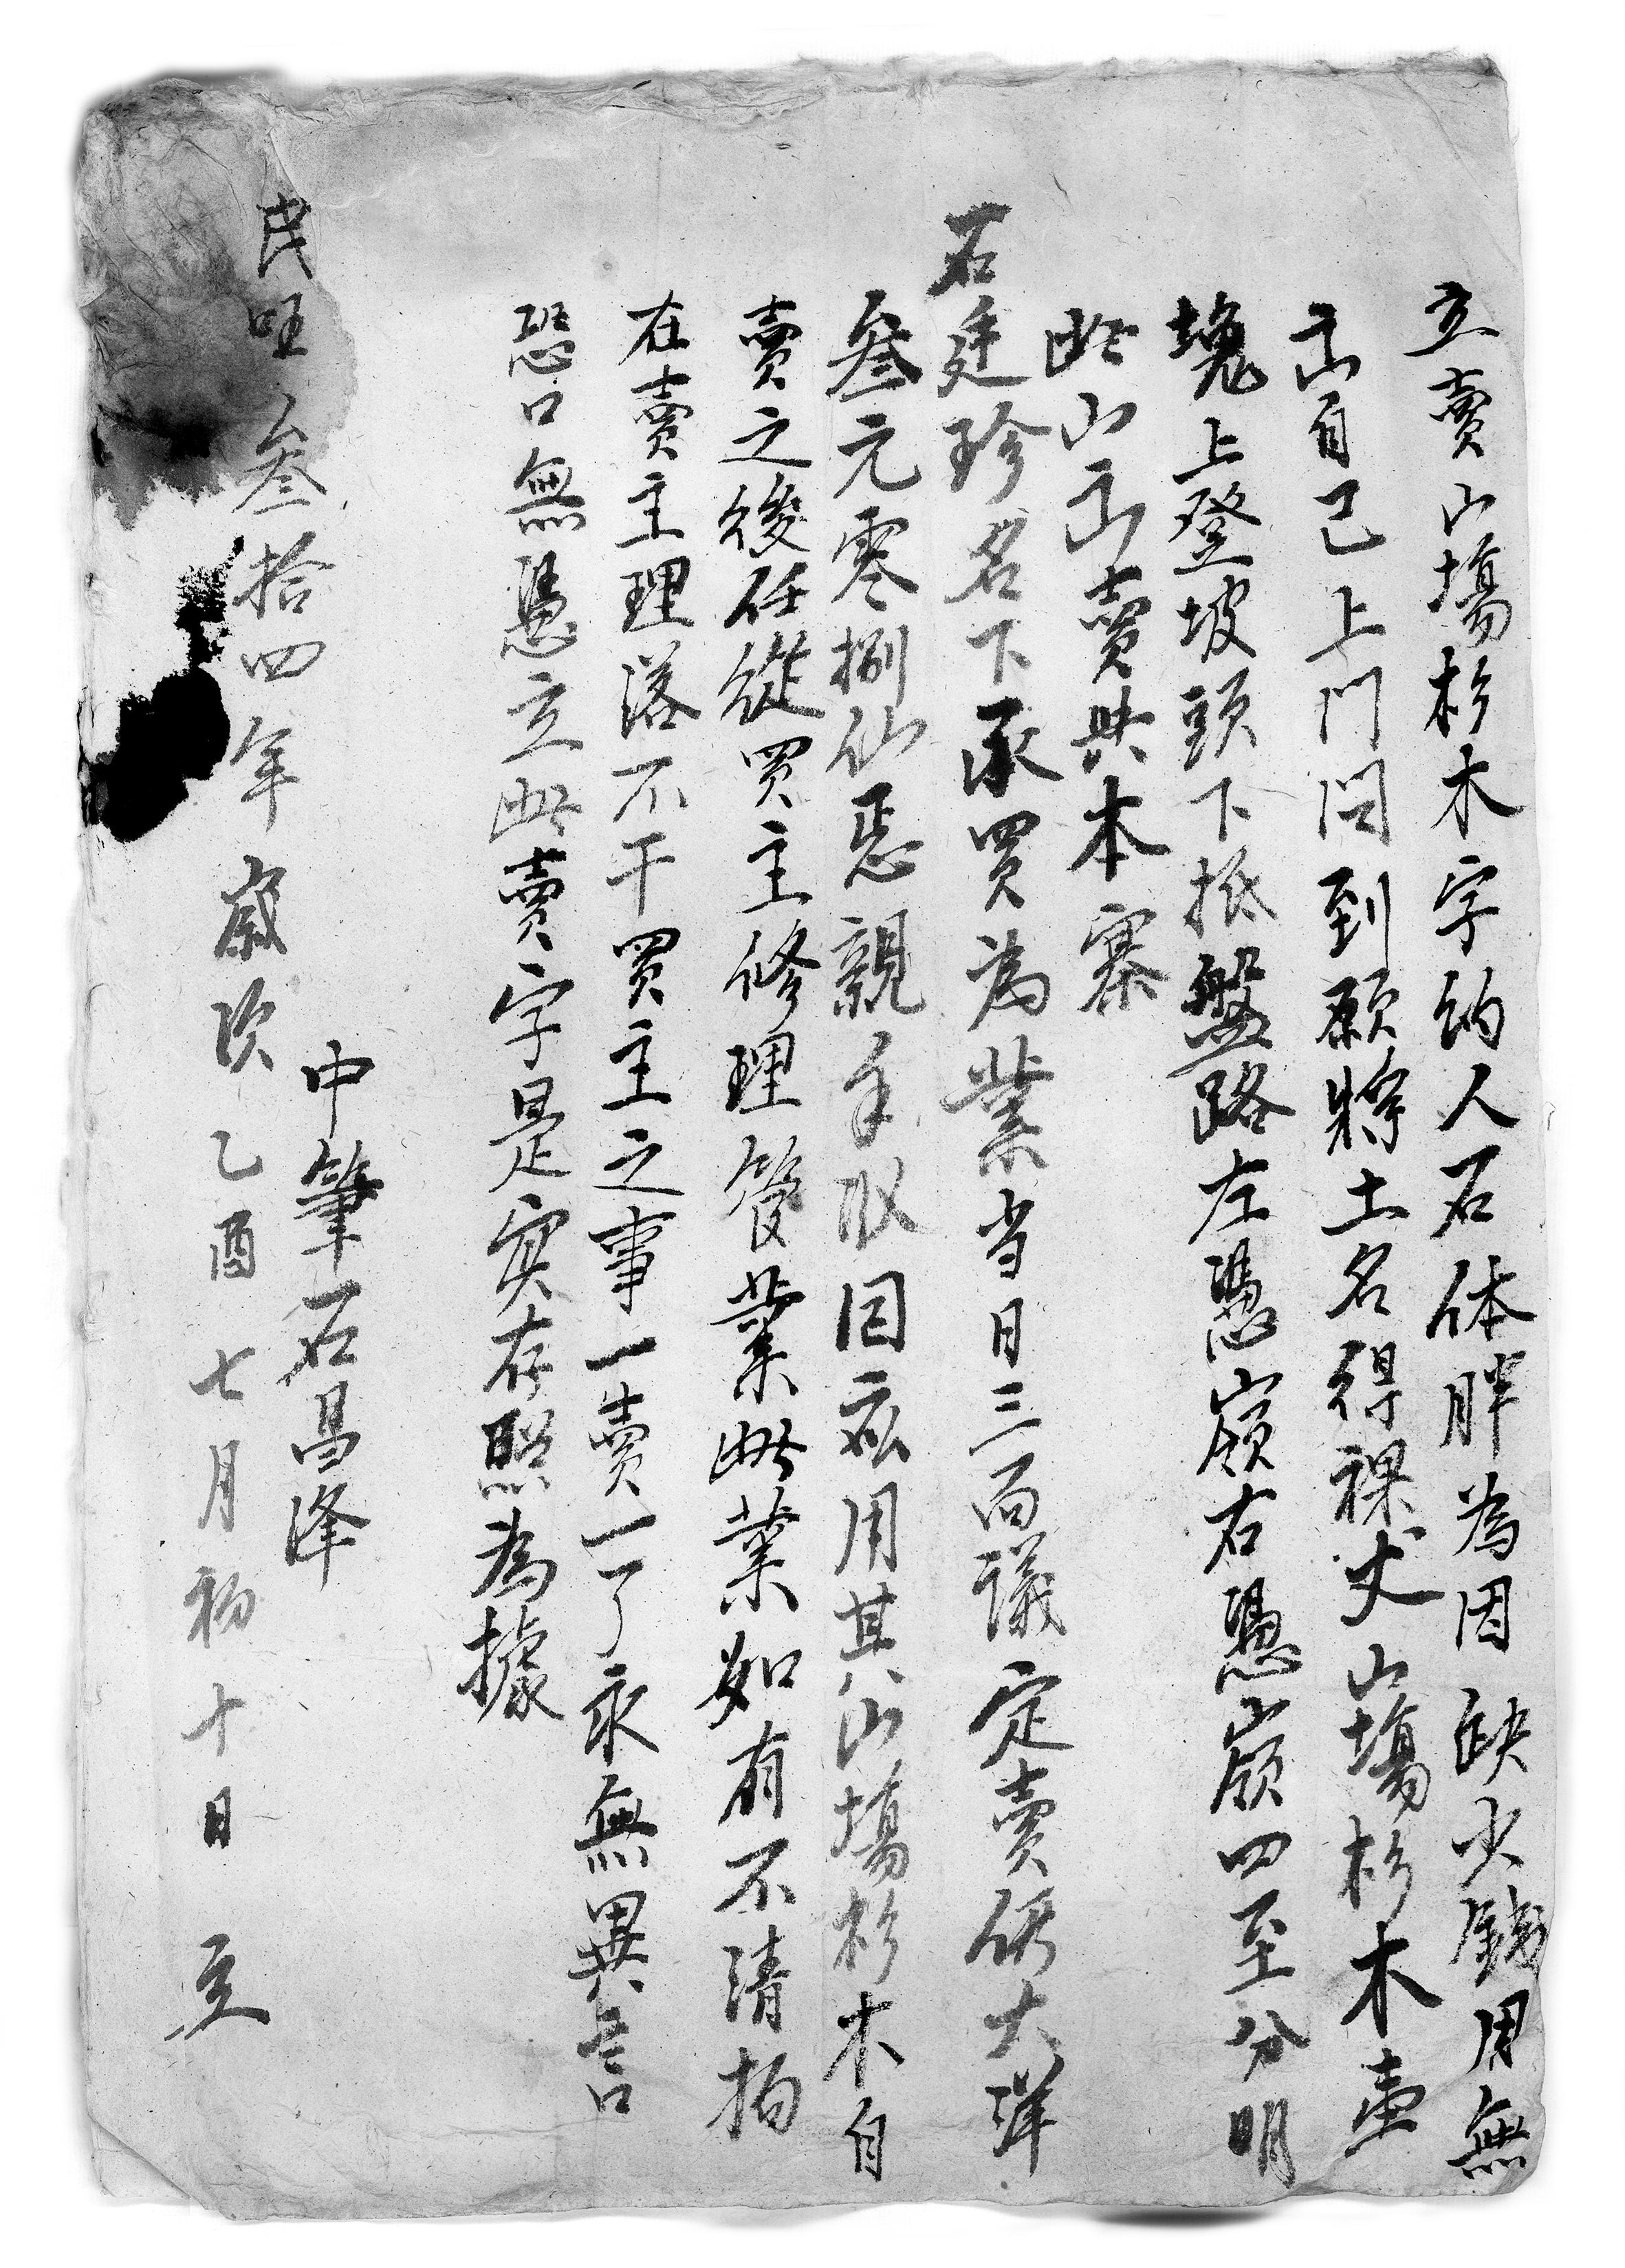 立賣山塲杉木字约人石体胖為因缺少錢用無
出自己上門问到願將土名得裸丈山塲杉木壹
塊上登坡頭下抵盤路左憑嶺右憑嶺四至分明
此山出賣與本寨
石廷珍名下承買為業当日三面議定賣價大洋
叁元零捌仙
親手收回應用其山塲杉木自
賣之後任從買主修理管業此業如有不清拘
在賣主理落不干買主之事一賣一了永無異言
恐口無憑立此賣字是实存照為據
中筆石昌泽
民国叁拾四年歲次乙酉七月初十日立